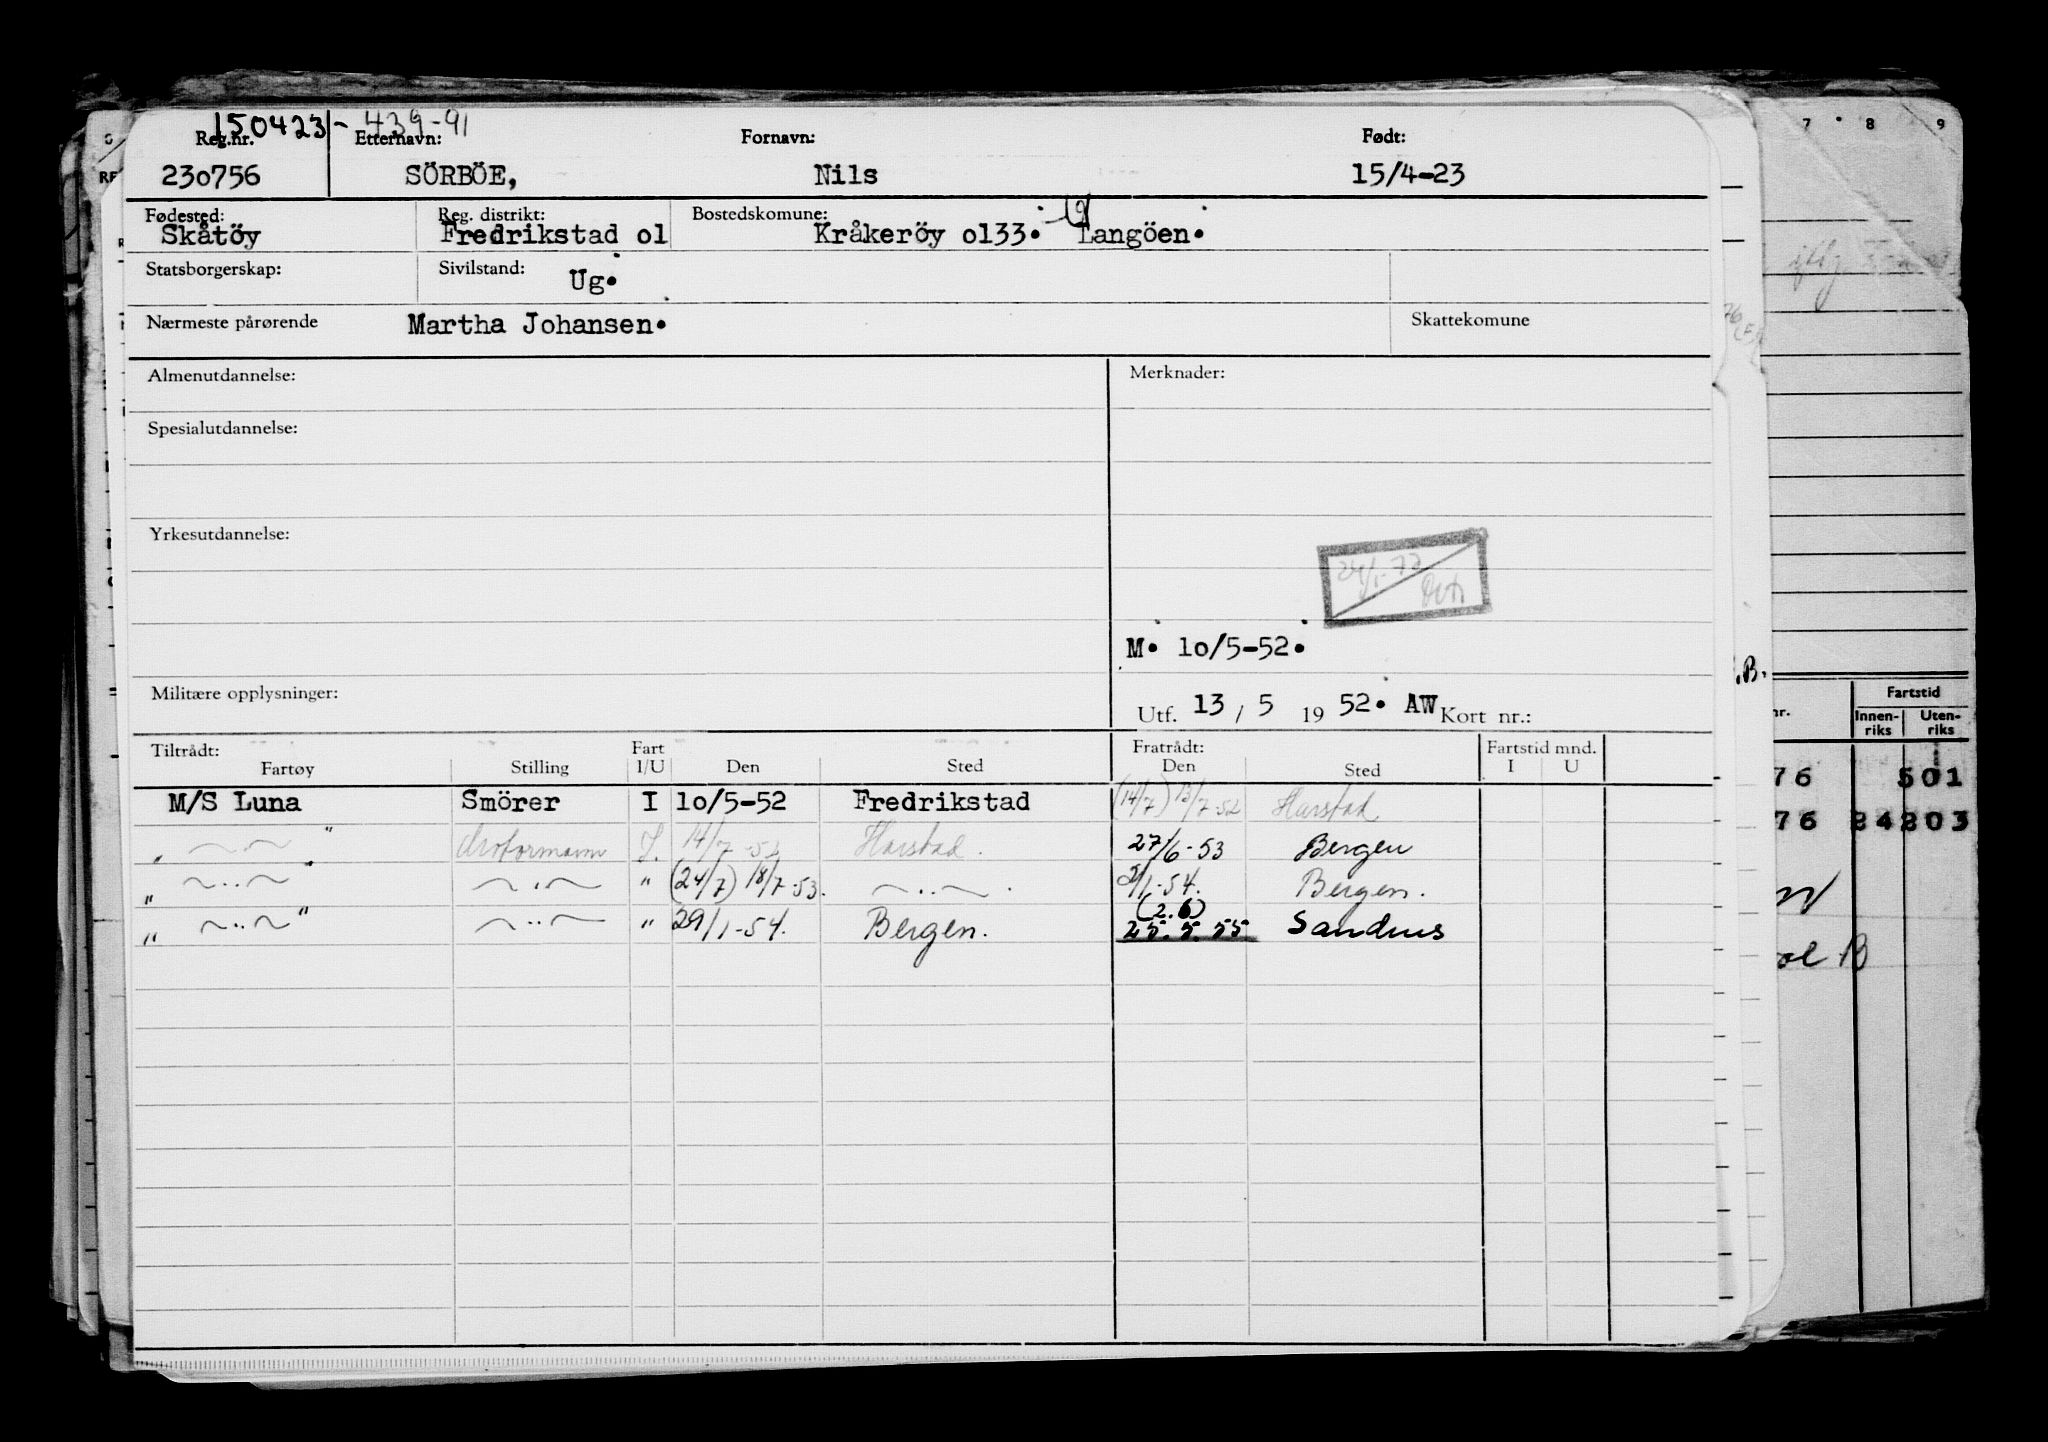 150423 - 439-91
Reg.nr. Etternavn: Fornavn: Født:
230756 SÖRBÖE, Nils 15/4-23
Fødested: Reg. distrikt: Bostedskomune:
Skåtöy Fredrikstad o1 Kråkeröy o133. Langöen.
Statsborgerskap: Sivilstand: Ug.
Nærmeste pårørende Martha Johansen. Skattekomune
Almenutdannelse: Merknader:
Spesialutdannelse:
Yrkesutdannelse:
24/1-77
M. 1o/5-52.
Militære opplysninger:
Utf. 13 / 5 19 52. AW Kort nr.:
Tiltrådt: Fart Fratrådt: Fartstid mnd.
Fartøy Stilling I/U Den Sted Den Sted I U
M/S Luna Smörer I 1o/5-52 Fredrikstad (14/7) 13/7-52 Harstad
" —..— " Motormann I. 14/7-52 Harstad. 27/6-53 Bergen
" —..— " —..— " (24/7) 18/7-53. —..—. 2/1-54. Bergen.
" —..— " —..— " 29/1-54. Bergen. (2.6) 25.5.55 Sandnes
7 8 9
.B.
nr. Fartstid
Innenriks Utenriks
76 501
76 24203